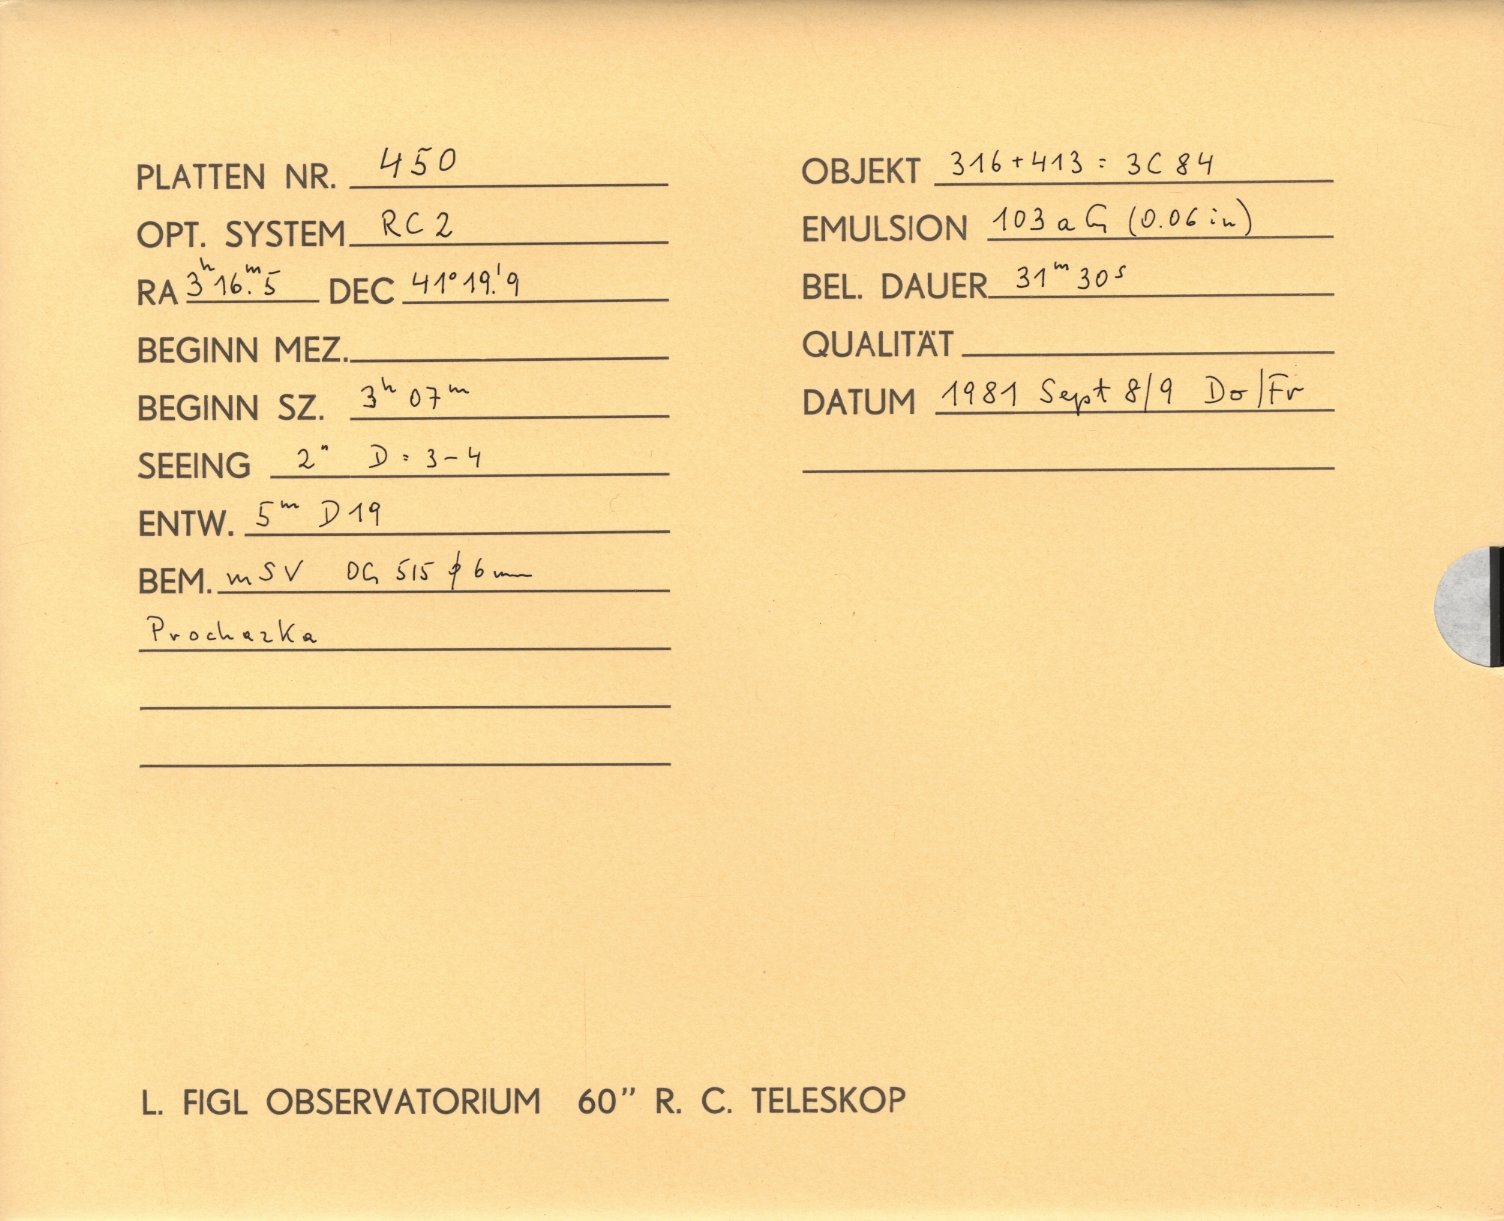 PLATTEN NR. 450
OPT. SYSTEM RC2
RA 3ʰ16ᵐ.5 DEC 41°19.'9
BEGINN MEZ.
BEGINN SZ. 3ʰ 07ᵐ
SEEING 2" D = 3-4
ENTW. 5ᵐ D19
BEM. mSV OG 515 ϕ 6mm
Prochazka
OBJEKT 316+413 = 3C 84
EMULSION 103aG (0.06 in)
BEL. DAUER 31ᵐ 30ˢ
QUALITÄT
DATUM 1981 Sept 8/9 Do/Fr
L. FIGL OBSERVATORIUM 60" R. C. TELESKOP